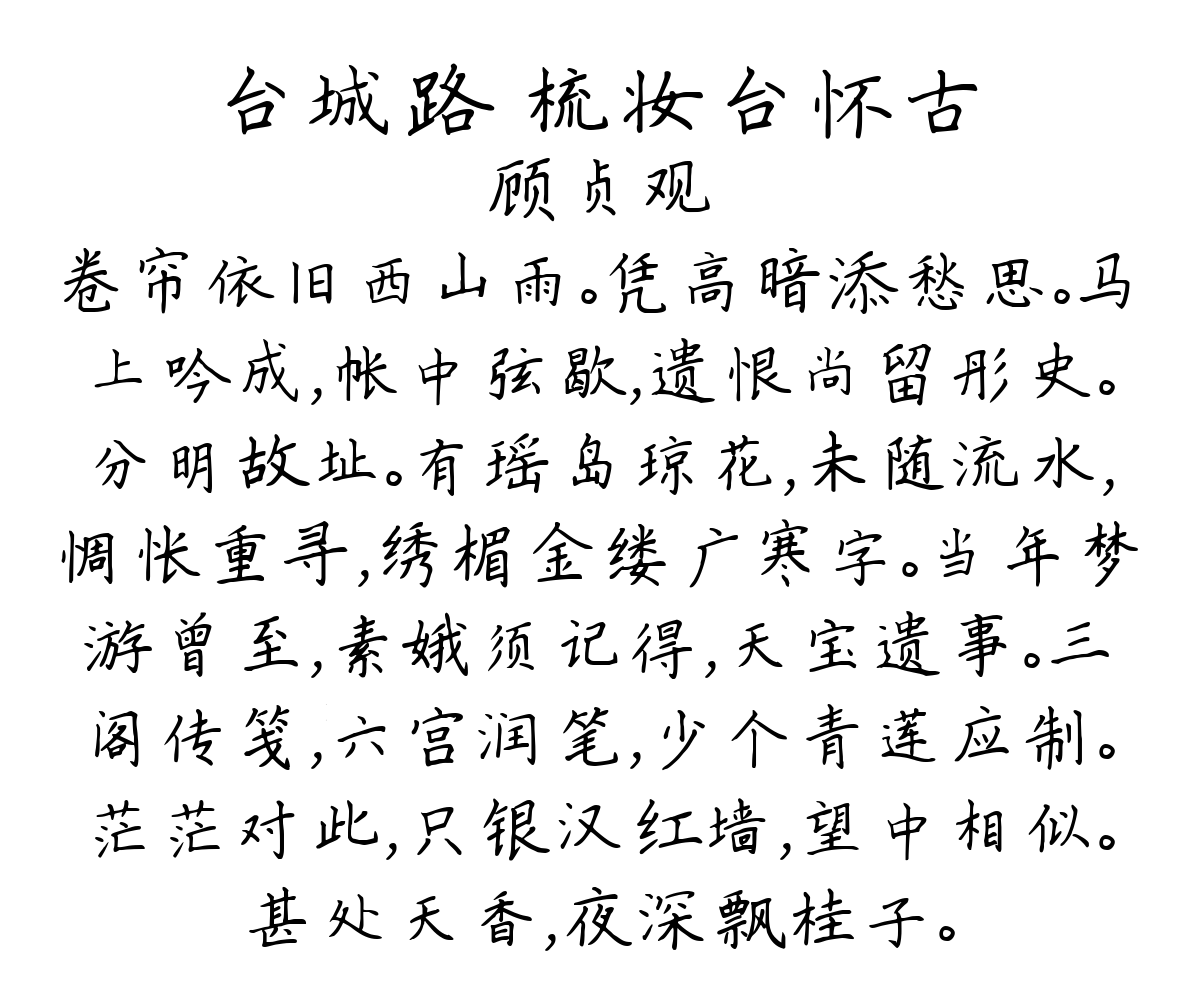 台城路 梳妆台怀古
顾贞观
卷帘依旧西山雨。凭高暗添愁思。马
上吟成,帐中弦歇,遗恨尚留彤史。
分明故址。有瑶岛琼花,未随流水,
惆怅重寻,绣楣金缕广寒字。当年梦
游曾至,素娥须记得,天宝遗事。三
阁传笺,六宫润笔,少个青莲应制。
茫茫对此,只银汉红墙,望中相似。
甚处天香,夜深飘桂子。